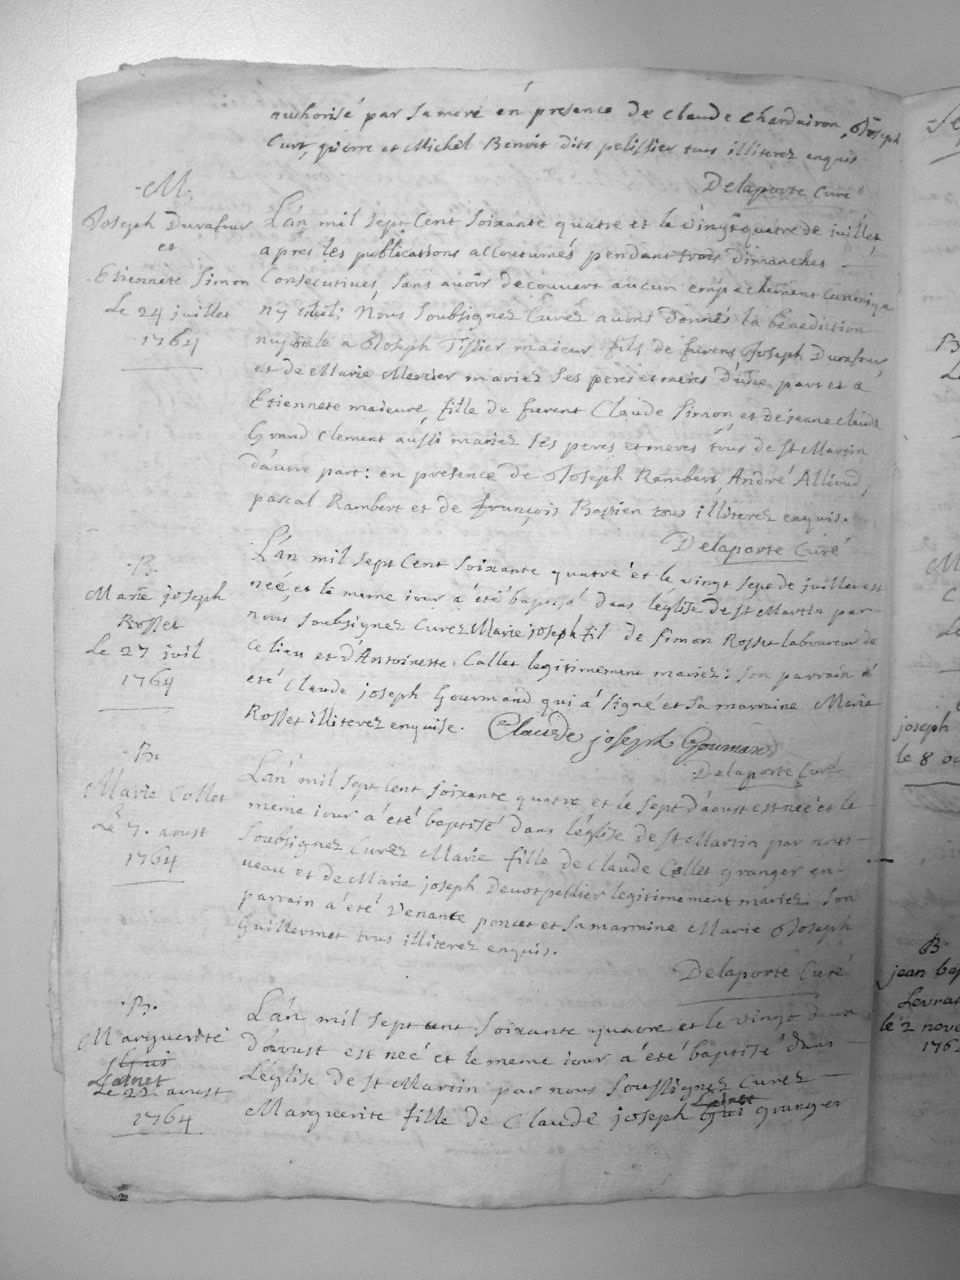 authorisé par sa mere en presence de Claude Chardairon, Joseph
Curt, pierre et Michel Benoit dits pelissier tous illiterez enquis
Delaporte Curé
-M.
Joseph Durafour
et
Etiennete Simon
Le 24 juillet
1764
L'an mil sept Cent soixante quatre et le vingt quatre de juillet,
apres les publications accoutumés pendant trois dimanches
Consecutives, sans avoir decouvert aucun empechement canonique
ny civil; Nous soubsignez Curez avons donnés la benediction
nuptiale a Joseph majeur fils de furent Joseph Durafour
et de Marie Mercier mariez ses peres et meres d'une part et a
Etiennete majeure, fille de furent Claude Simon, et de jeane claude
Grand clement aussi mariez ses peres et meres tous de St Martin
d'autre part: en presence de Joseph Rambert, André Allioud,
pascal Rambert et de françois Bassien tous illiterez enquis.
Delaporte Curé
-B.
Marie joseph
Rosset
Le 27 juil
1764
L'an mil sept Cent soixante quatre et le vingt sept de juillet est
neé et le meme jour a été baptisé dans l'église de St Martin par
nous soubsignez Curez Marie joseph fil de Simon Rosset laboureur de
ce lieu et d'Antoinette Collet legitimement mariez: son parrain a
eté Claude joseph Gourmand qui a signé et sa marraine Marie
Rosset illiterez enquise. Claude joseph Gourmand
Delaporte Curé
-B.
Marie Collet
Le 7. aoust
1764
L'an mil sept Cent soixante quatre et le sept d'aoust est neé et le
meme jour a été baptisé dans l'église de St Martin par nous
soubsignez Curez Marie fille de Claude Collet granger en-
ueau et de Marie joseph Devot pellier legitimement mariez: son
parrain a été Venante poncet et sa marraine Marie Joseph
Guillermet tous illiterez enquis.
Delaporte Curé
.B.
Marguerite
Le 22 aoust
1764
L'an mil sept cent soixante quatre et le vingt deux
d'aoust est neé et le meme jour a été baptisé dans
L'église de St Martin par nous soussignez Curez
Marguerite fille de Claude joseph granger
joseph
B.
jean bap
Levrat
le 2 nove